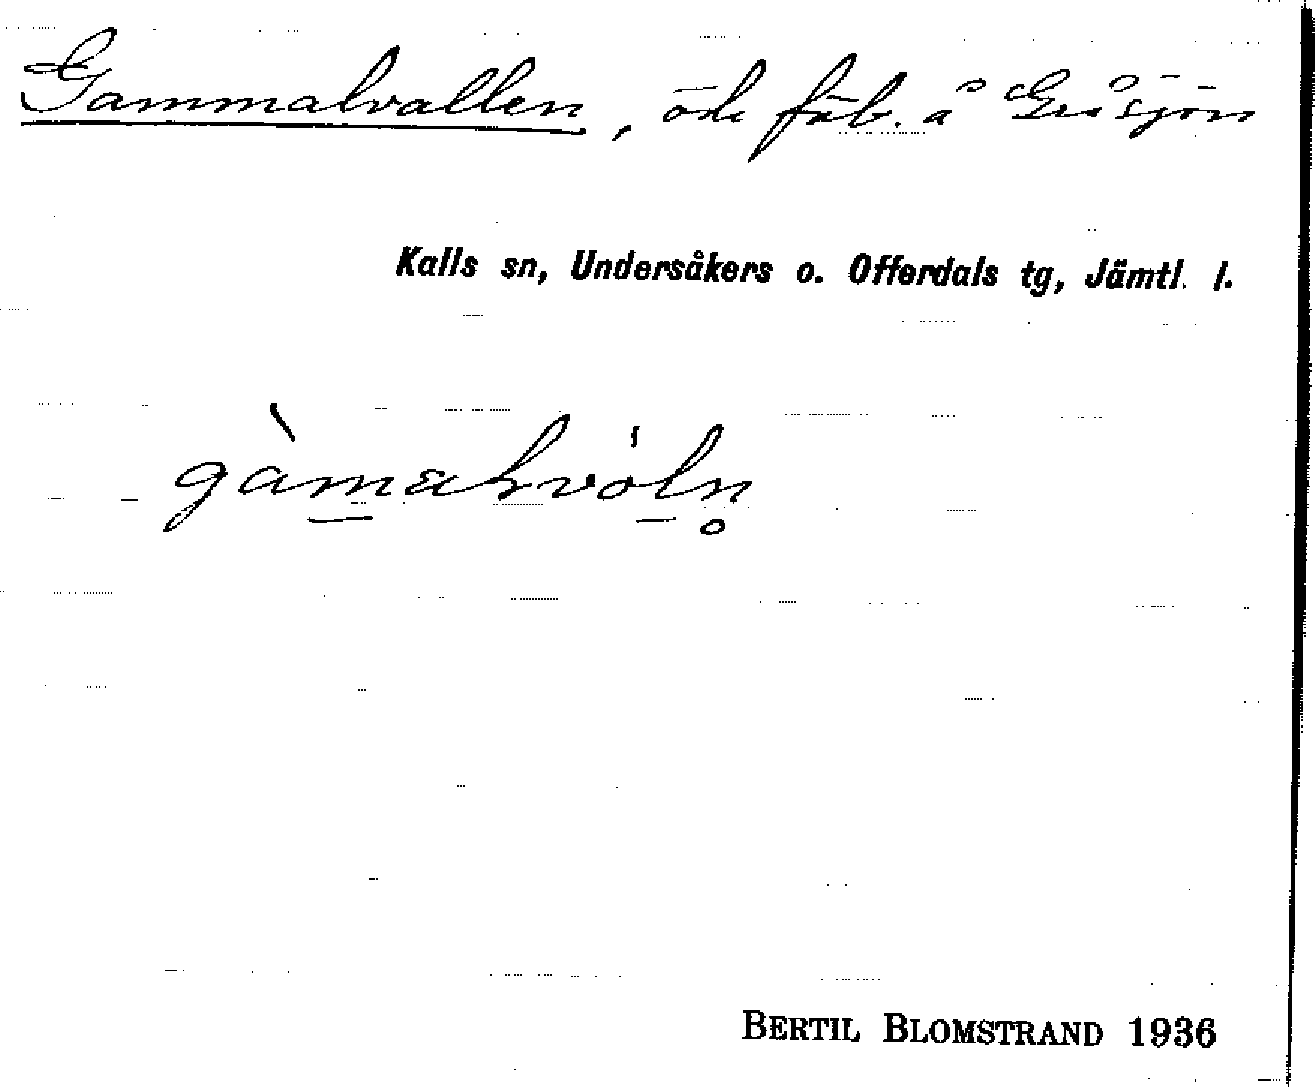 Gammalvallen, öde fäb. å Gråsjön
Kalls sn, Undersåkers o. Offerdals tg, Jämtl. l.
BERTIL BLOMSTRAND 1936